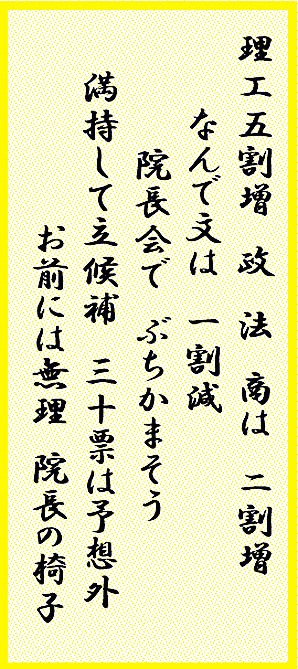 理工五割増 政 法 商は 二割増
なんで文は 一割減
院長会で ぶちかまそう
満持して立候補 三十票は予想外
お前には無理 院長の椅子